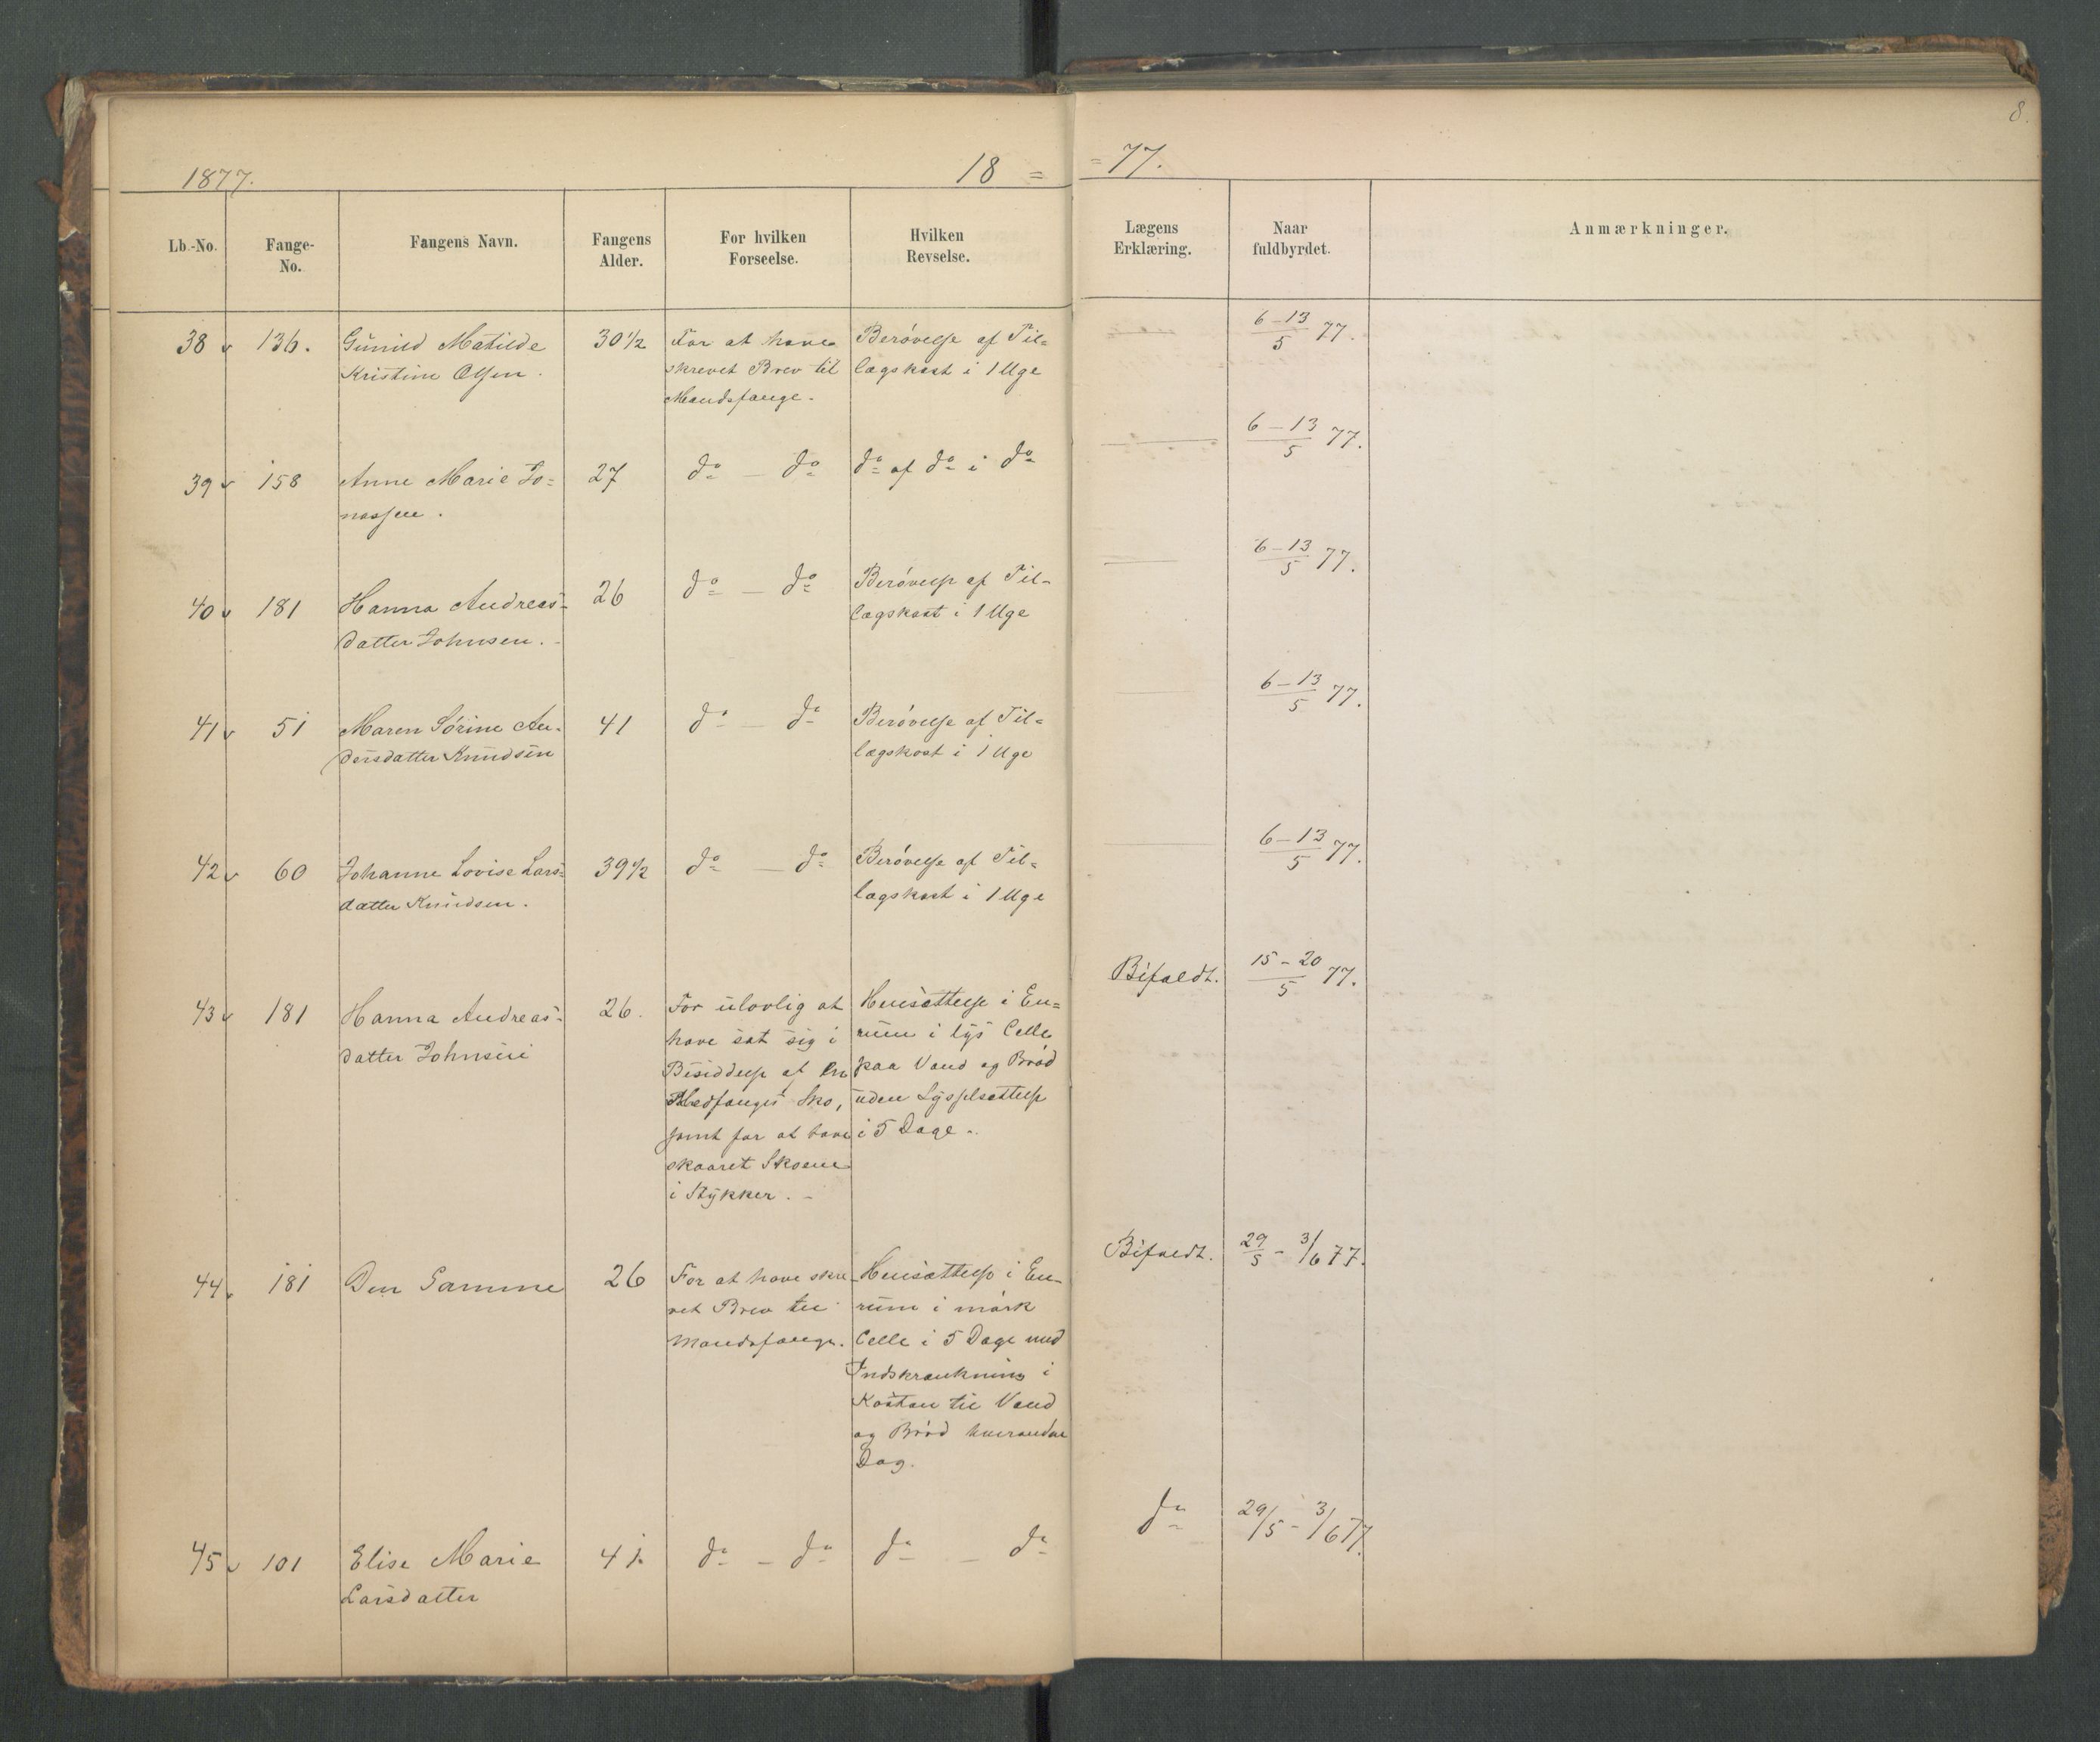 8.
1877.
18 =
= 77.
Lb.-No.
Fange-
No.
Fangens Navn.
Fangens
Alder.
For hvilken
Forseelse.
Hvilken
Revselse.
Lægens
Erklæring.
Naar
fuldbyrdet.
Anmærkninger.
38 v
136.
Gunild Matilde
Kristine Olsen.
30 1/2
For at have
skrevet Brev til
Mandsfange.
Berøvelse af Til=
lægskost i 1 Uge
6-13/5 77.
39 v
158
Anne Marie Jo=
nassen.
27
do — do
do af do i do
6-13/5 77.
40 v
181
Hanna Andreas-
datter Johnsen.
26
do — do
Berøvelse af Til-
lægskost i 1 Uge
6-13/5 77.
41 v
51
Maren Sørine An-
dersdatter Knudsen
41
do — do
Berøvelse af Til=
lægskost i 1 Uge
6-13/5 77.
42 v
60
Johanne Lovise Lars-
datter Knudsen.
39 1/2
do — do
Berøvelse af Til=
lægskost i 1 Uge
6-13/5 77.
43 v
181
Hanna Andreas-
datter Johnsen
26.
For ulovlig at
have sat sig i
Besiddelse af en
Medfanges Sko,
samt for at have
skaaret Skoene
i Stykker. -
Hensættelse i En=
rum i lys Celle
paa Vand og Brød
uden
i 5 Dage.
Bifaldt.
15-20/5 77.
44 v
181
Den Samme
26
For at have skre-
vet Brev til
Mandsfange.
Hensættelse i En-
rum i mørk
Celle i 5 Dage med
Indskrænkning i
Kosten til Vand
og Brød hverandre
Dag.
Bifaldt.
29/5 - 3/6 77.
45 v
101
Elise Marie
Larsdatter
41.
do — do
do — do
do
29/5 - 3/6 77.